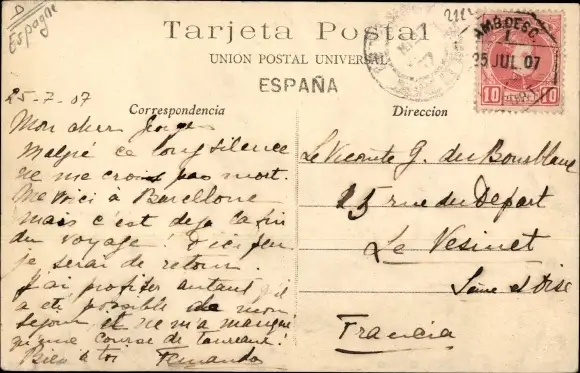 D
Espagne
Tarjeta Postal
UNION POSTAL UNIVERSAL
ESPAÑA
AMB. DESC.
1
25 JUL. 07
10 10
25-7-07
Correspondencia
Mon cher Georges
Malgré ce long silence
ne me crois pas mort.
Me voici à Barcelone
mais c'est deja la fin
du voyage! D'ici peu
je serai de retour.
J'ai profiter autant qu'il
a eté possible de mon
sejour, et ne m'a manqué
qu'une course de taureaux!
Bien à toi Fernando
Direccion
Le Vicomte G. du
15 rue du Départ
Le Vesinet
Seine et Oise
Francia